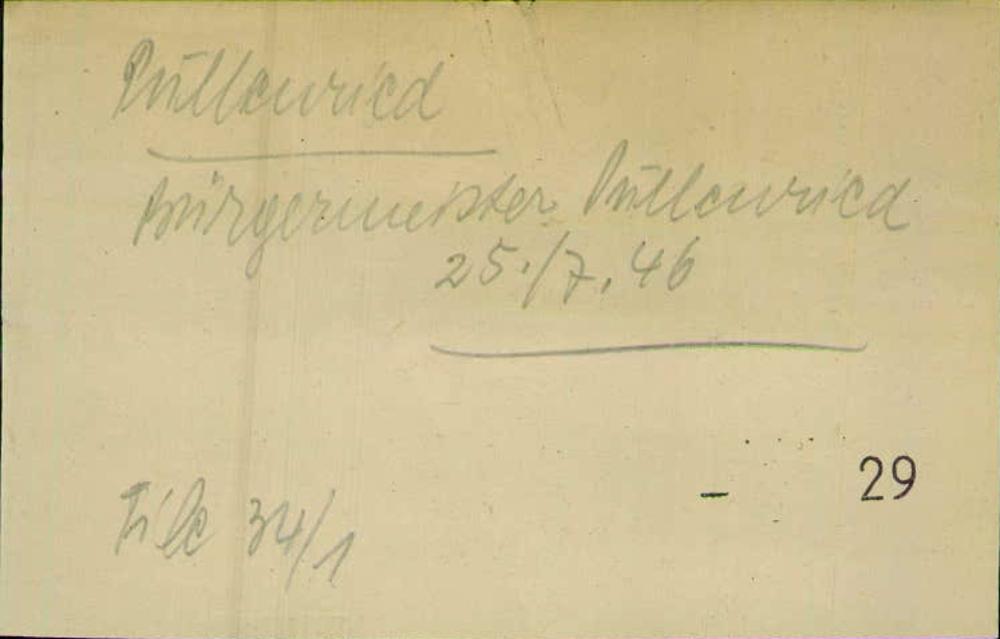 Pullenried
Bürgermeister Pullenried
25./7.46
- 29
File 34/1